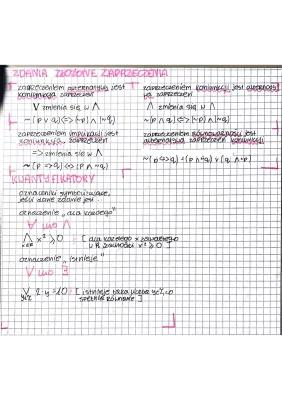 ZDANIA ZŁOŻONE ZAPRZECZENIA
zaprzeczeniem alternatywy jest
koniunkcja zaprzeczeń
V zmienia się w Λ
~(p ∨ q) <=> (~p) ∧ (~q)
zaprzeczeniem koniunkcji jest alternatywa
zaprzeczeń
Λ zmienia się w V
~(p ∧ q) <=> (~p) ∨ (~q)
zaprzeczeniem implikacji jest
koniunkcja zaprzeczeń
=> zmienia się w Λ
~(p => q) <=> (p ∧ ~q)
zaprzeczeniem równoważności jest
alternatywa zaprzeczeń
~(p <=> q) = (p ∧ ~q) ∨ (q ∧ ~p)
KWANTYFIKATORY
oznaczniki symbolizujące,
jeśli dane zdanie jest...
oznaczenie „dla każdego"
∀ lub Λ
Λ x² ≥ 0 [ dla każdego x zawartego
x∈R w R zachodzi x² ≥ 0 ]
oznaczenie „istnieje"
V lub ∃
V 2·y=10 [ istnieje taka liczba
spełnia równanie ]